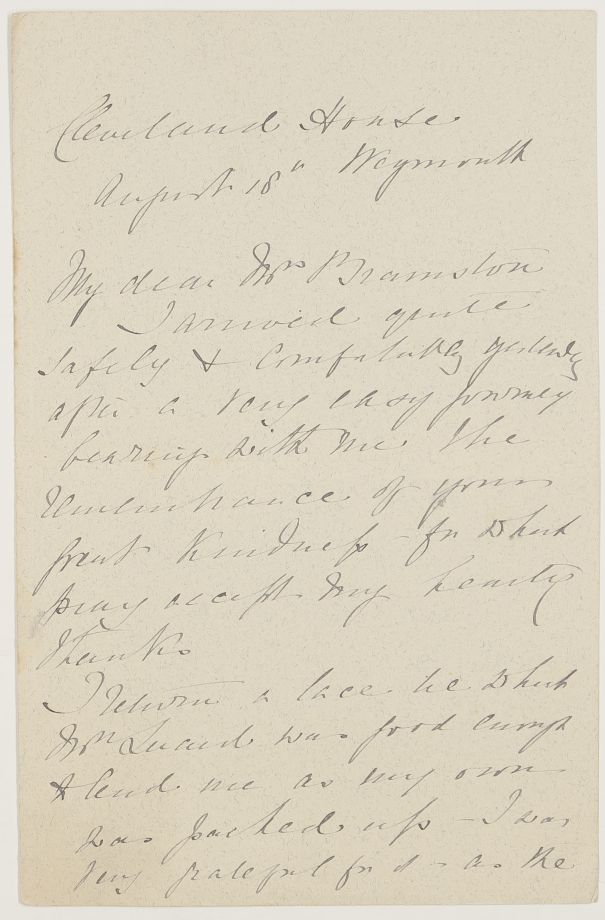 Cleveland House
Weymouth
August 18th
My dear Mrs Bramston
I arrived quite
safely & comfortably yesterday
after a very easy journey
bearing with me the
remembrance of your
great kindness - for which
pray accept my hearty
thanks
I return a lace tie which
Mrs Luard was good enough
to lend me as my own
was packed up - I was
very grateful for it - as the